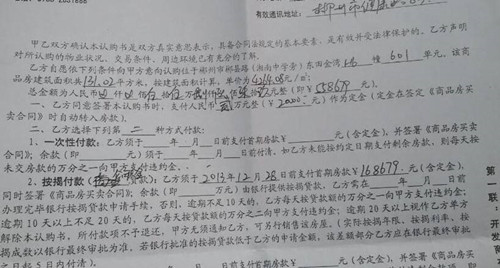 有效通讯地址：
甲乙双方确认本认购书是双方真实意思表示，具备合同法规定的基本要素，是有效并受法律保护的。乙方声明
对所认购的物业状况、交易条件、周边环境已有充分的了解。
乙方自愿依下列条件向甲方意向认购位于郴州市郴葛路（湘南中学旁）东田金湾 幢 601 单元，该商
品房建筑面积共131.02平方米，按建筑面积计算，单价为4214.08元/㎡；
总金额为人民币 元整（即￥558679元）。
一、乙方同意签署本认购书时，支付人民币贰万元整（￥20000元）作为定金（定金在签定《商品房买
卖合同》时自动转入房款）。
二、乙方选择下列第二种方式付款：
1. 一次性付款：乙方须于 年 月 日前支付首期房款￥ 元（含定金），并签署《商品房买卖
合同》；余款（即 元）须于 年 月 日前付清。如乙方未能按约定日期支付剩余房款，则每天按
未交房款的万分之一向甲方支付违约金。
2. 按揭付款（ 贷款）乙方须于2013年12月28日前支付首期房款￥168679.元（含定金），
同时签署《商品房买卖合同》；余款（即 万元）由银行提供按揭贷款，乙方需在 年 月 日前
办理完毕银行按揭贷款申请手续，否则，逾期不足10天的，乙方每天按贷款额的万分之一向甲方支付违约金；
逾期10天以上不足20天的，乙方每天按贷款额的万分之二向甲方支付违约金；逾期20天以上视作乙方单方
解除本认购书，所付款项不予退还，甲方无须通知乙方，可另行销售该房屋。（实际按揭年限、按揭利率、按
揭成数以银行最终审批为准，若银行批准的按揭贷款低于乙方的申请金额，该差额部分乙方应在银行最终审
之日起5日内付清）。
第
一
联
：
开
发